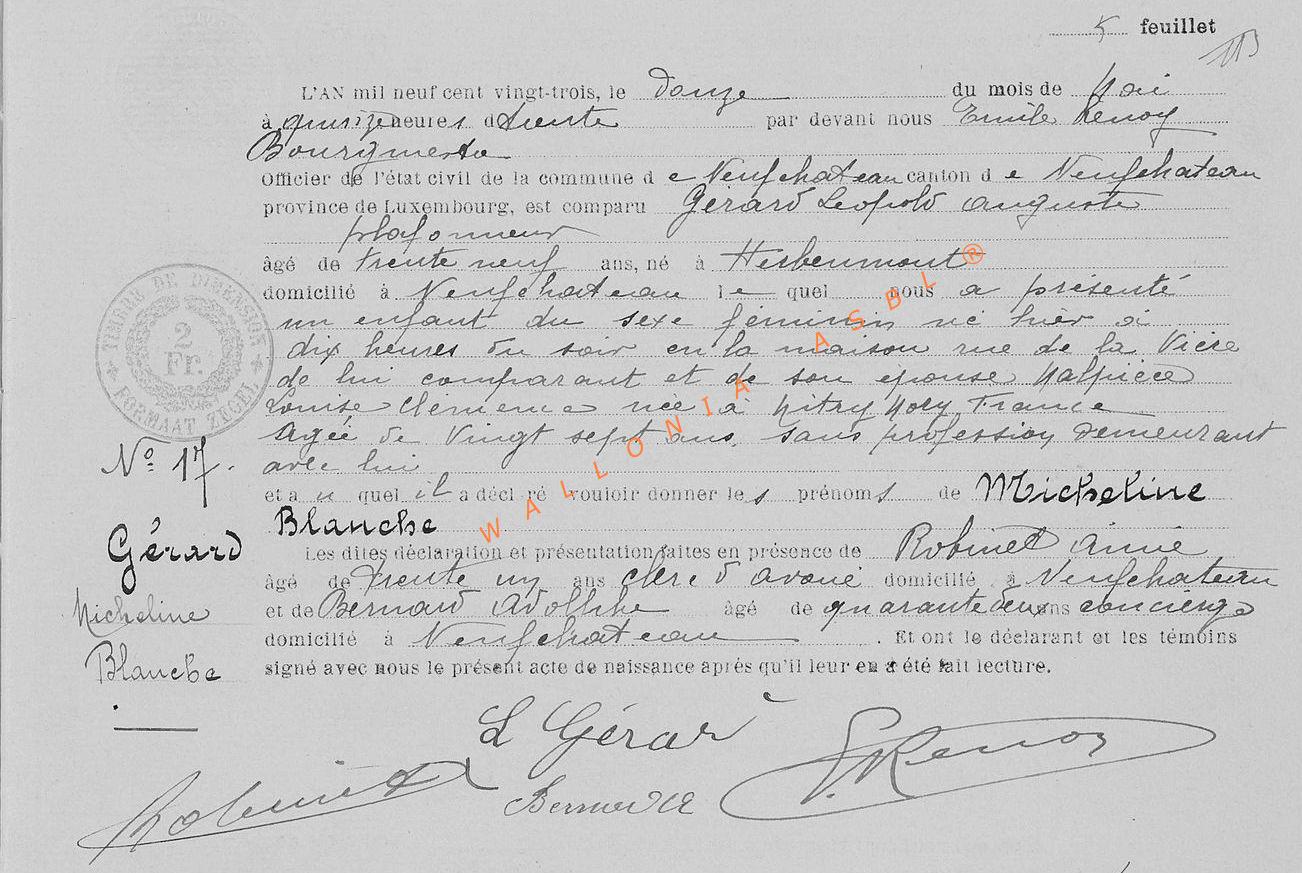 5 feuillet
113
L'AN mil neuf cent vingt-trois, le douze du mois de Mai
à quinze heures trente par devant nous Emile Renoy
Bourgmestre
Officier de l'état civil de la commune de Neufchateau canton de Neufchateau
province de Luxembourg, est comparu Gérard Leopold Auguste
plafonneur
âgé de trente neuf ans, né à Herbeumont
domicilié à Neufchateau lequel nous a présenté
un enfant du sexe féminin né hier à
dix heures du soir en la maison rue de la
de lui comparant et de son epouse
Louise Clémence née à Mitry Mory France
agée de vingt sept ans, sans profession demeurant
avec lui
et au quel il a décl ré vouloir donner les prénoms de Micheline
Blanche
Les dites déclaration et présentation faites en présence de Robinet Aimé
âgé de trente un ans clerc d'avoué domicilié à Neufchateau
et de Bernard Adolphe âgé de quarante deux ans concierge
domicilié à Neufchateau. Et ont le déclarant et les témoins
signé avec nous le présent acte de naissance après qu'il leur en a été fait lecture.
TIMBRE DE DIMENSION
2
Fr.
FORMAAT ZEGEL
No 17.
Gérard
Micheline
Blanche
WALLONIA ASBL®
L Gérard
E. Renoy
Robinet
Bernard A